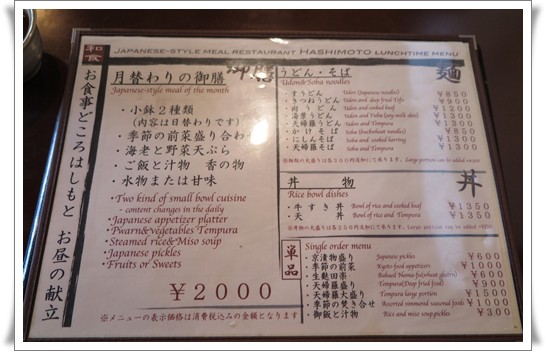 和食
JAPANESE-STYLE MEAL RESTAURANT HASHIMOTO LUNCHTIME MENU
お食事どころはしもと お昼の献立
月替わりの御膳
御膳
Japanese-style meal of the month
・小鉢2種類
(内容は日替わりです)
・季節の前菜盛り合わせ
・海老と野菜天ぷら
・ご飯と汁物 香の物
・水物または甘味
・Two kind of small bowl cuisine
- content changes in the daily
・Japanese appetizer platter
・Pwarn&vegetables Tempura
・Steamed rice&Miso soup
・Japanese pickles
・Fruits or Sweets
¥2000
※メニューの表示価格は消費税込みの金額となります
うどん・そば
麺
Udon&Soba noodles
・すうどん Udon (Japanese noodles) ¥850
・きつねうどん Udon and deep fried Tofu ¥900
・肉うどん Udon and cooked beef ¥1200
・湯葉うどん Udon and Yuba (soy milk skin)
・天婦羅うどん Udon and Tempura
・かけそば Soba (Buckwheat noodles) ¥900
・にしんそば Soba and cooked herring
・天婦羅そば Soba and Tempura
Large portion can be added
丼物
丼
Rice bowl dishes
・牛すき丼 Bowl of rice and cooked beef ¥1350
・天丼 Bowl of rice and Tempura ¥1350
Large portion can be added
単品
Single order menu
・京漬物盛り Japanese pickles ¥600
・季節の前菜 Kyoto food appetizers
・生麩田楽 Baked Nama-fu(wheat gluten)
・天婦羅盛り Tempura(Deep fried food)
・天婦羅大盛り Tempura large portion ¥1500
・季節の焚き合せ Assorted simmered seasonal foods
・御飯と汁物 Rice and miso soup,pickles ¥300